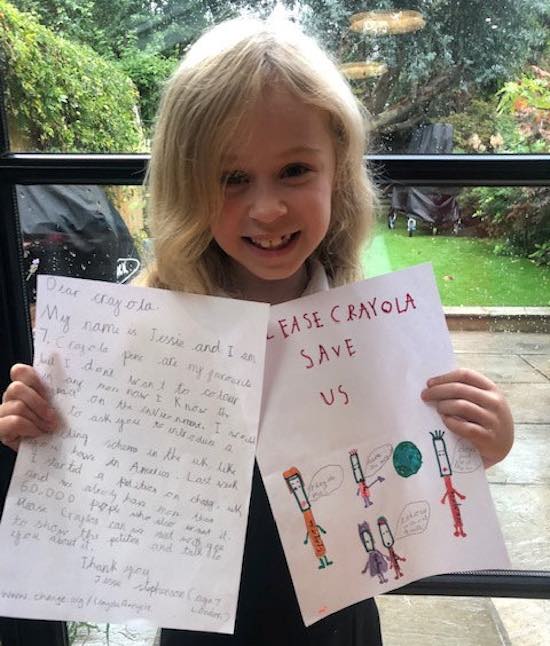 Dear crayola
My name is Jessie and I am
7. Crayola pens are my favourite
but I dont want to colour
in any more now I know the
on the environment. I would
to ask you to introduce a
scheme in the uk like
have in America. Last week
I started a petition on
and we already have more than
60,000 people who also want it.
Please Crayola can we meet with you
to show the petition and talk to
you about it.
Thank you
Jessie Stephenson (age 7
London)
LEASE CRAYOLA
SAVE
US